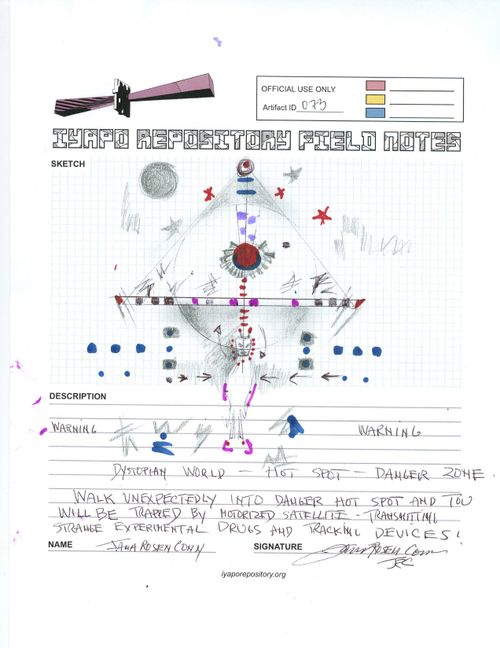 OFFICIAL USE ONLY
Artifact ID 073
IYAPO REPOSITORY FIELD NOTES
SKETCH
DESCRIPTION
WARNING WARNING
DYSTOPIAN WORLD - HOT SPOT - DANGER ZONE.
WALK UNEXPECTEDLY INTO DANGER HOT SPOT AND YOU
WILL BE TRAPPED BY MOTORIZED SATELLITE - TRANSMITTING
STRANGE EXPERIMENTAL DRUGS AND TRACKING DEVICES!
NAME JANA ROSEN COHN SIGNATURE
iyaporepository.org